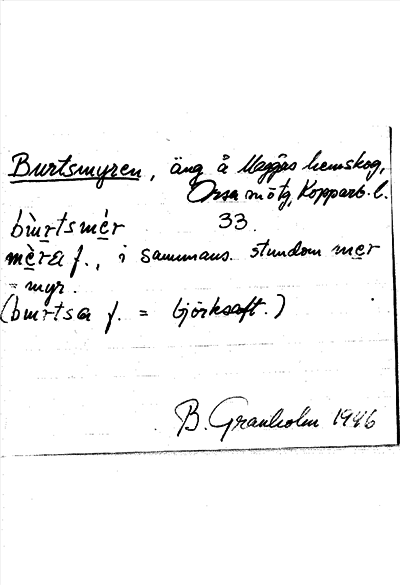 Burtsmyren, äng å Maggås hemskog,
Orsa mötg, Kopparb. l.
bùrtsmér 33.
mèra f., i sammans. stundom mer
= myr.
(burtsa f. = björksaft.)
B. Granholm 1946